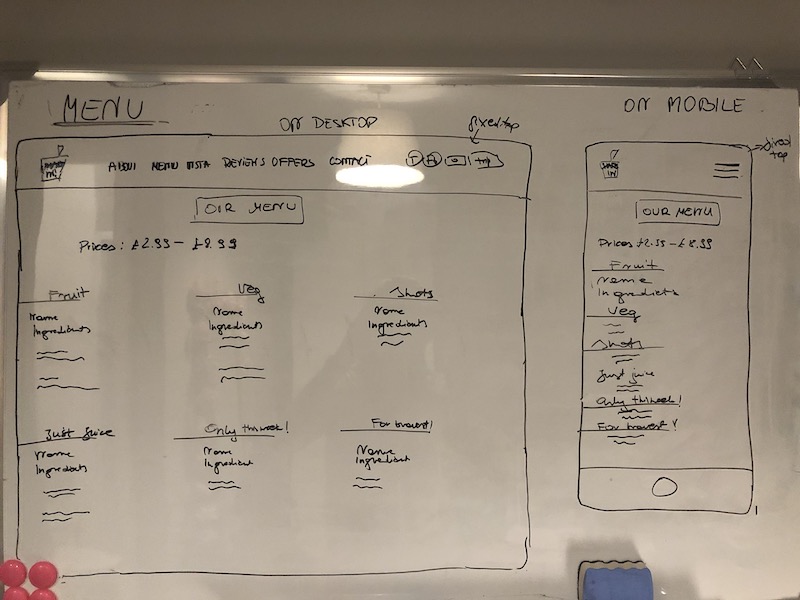 MENU
ON DESKTOP
fixed top
ON MOBILE
fixed top
ABOUT MENU INSTA REVIEWS OFFERS CONTACT
OUR MENU
Prices: £2.99 – £8.99
Fruit
Name
Ingredients
Veg
Name
Ingredients
Shots
Name
Ingredients
Just Juice
Name
Ingredients
Only this week!
Name
Ingredient
For bravest!
Name
Ingredient
OUR MENU
Prices £2.99 – £8.99
Fruit
Name
Ingredients
Veg
Shots
Just juice
Only this week!
For bravest!